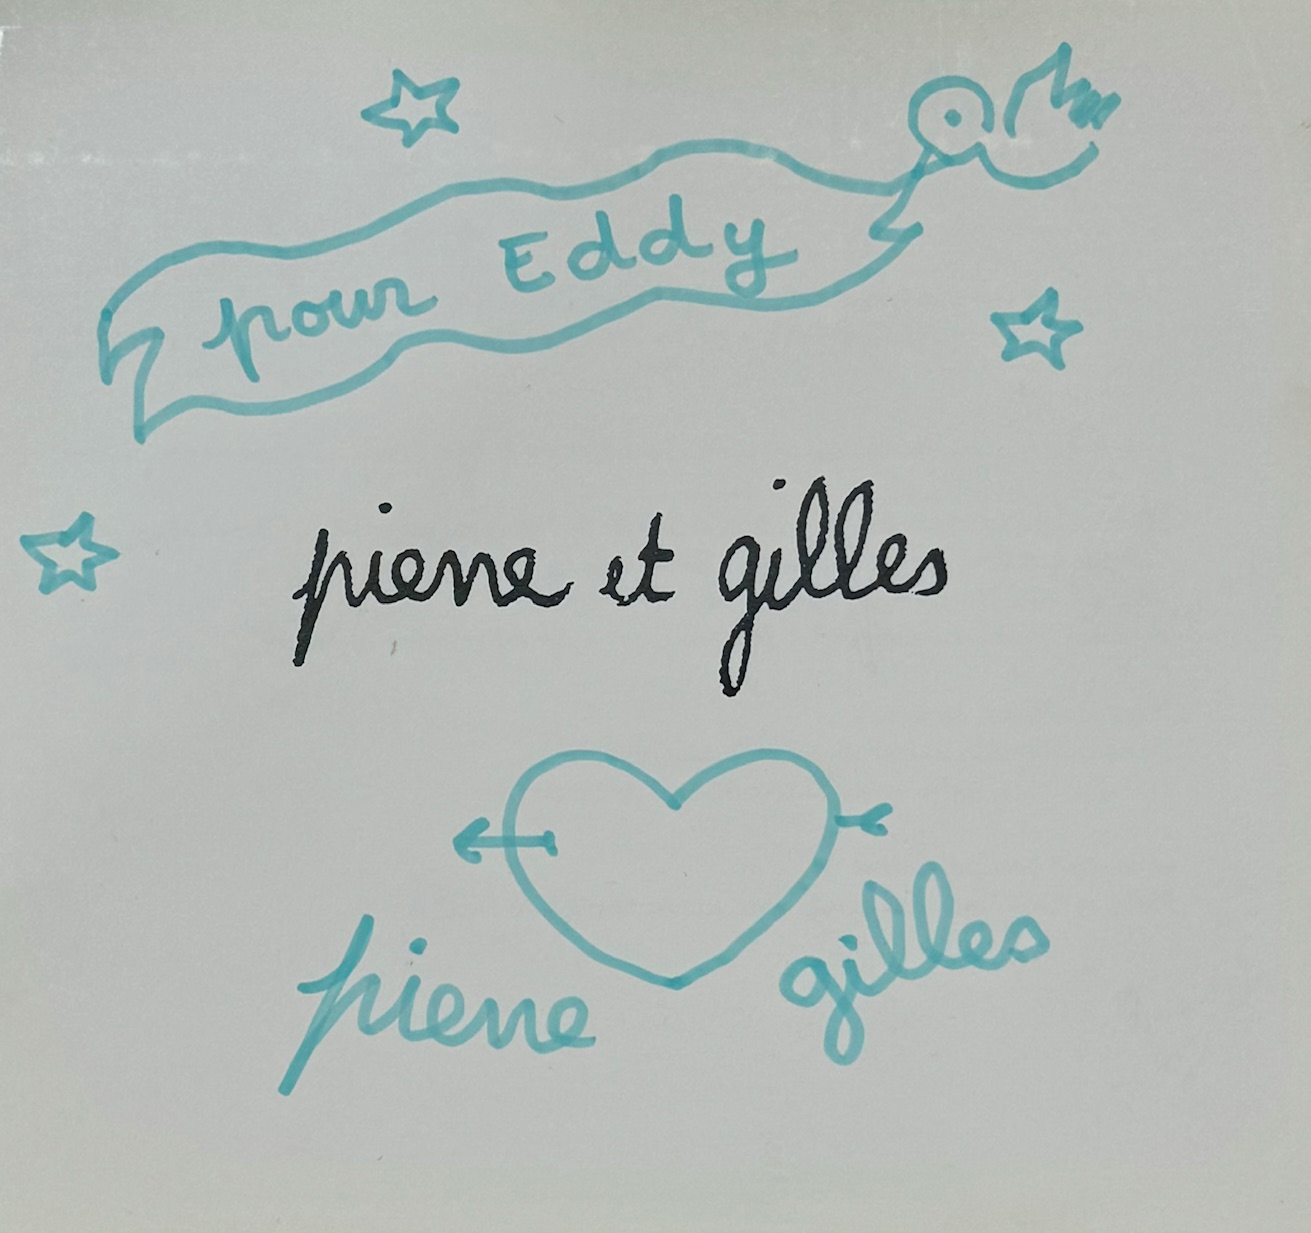 pour Eddy
pierre et gilles
pierre gilles